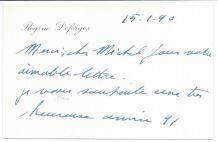 Régine Deforges
15.1.90
Merci, cher Michel pour votre
aimable lettre.
je vous souhaite une très
heureuse année 91